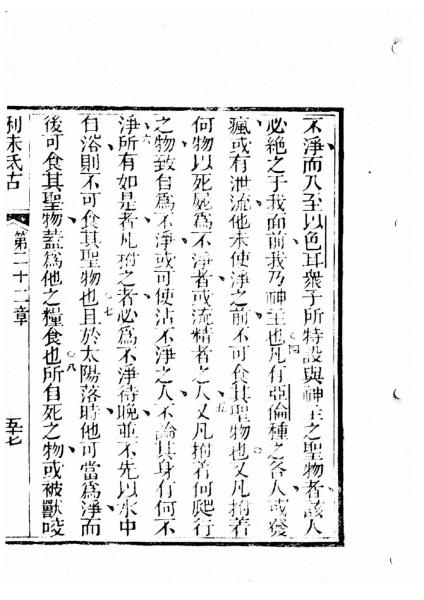 不淨而乃至以色耳衆子所特設與神主之聖物者該人
必絶之于我面前我乃神主也凡有亞倫種之各人或發
四
瘋或有泄流他未使淨之前不可食其聖物也又凡拊着
何物以死屍爲不淨者或流精者之人又凡拊着何爬行
五
之物致自爲不淨或可使沾不淨之人不論其身有何不
淨所有如是者凡拊之者必爲不淨待晚並不先以水中
六
自浴則不可食其聖物也且於太陽落時他可當爲淨而
七
後可食其聖物蓋爲他之糧食也所自死之物或被獸咬
八
利未氏古
第二十二章